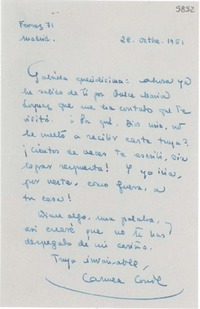 5852
Ferraz 71
Madrid.
28. Octbre. 1951
Gabriela queridísima: ahora ya
he sabido de ti por Dulce María
Loynaz que me ha contado que te
visitó. ¿Por qué, Dios mío, no
he vuelto a recibir carta tuya?
¡Cientos de veces te escribí, sin
lograr respuesta! Y yo iría
por verte, como fuera, a
tu casa!
Dime algo, una palabra, y
así creeré que no te has
despegado de mi cariño.
Tuya invariable,
Carmen Conde